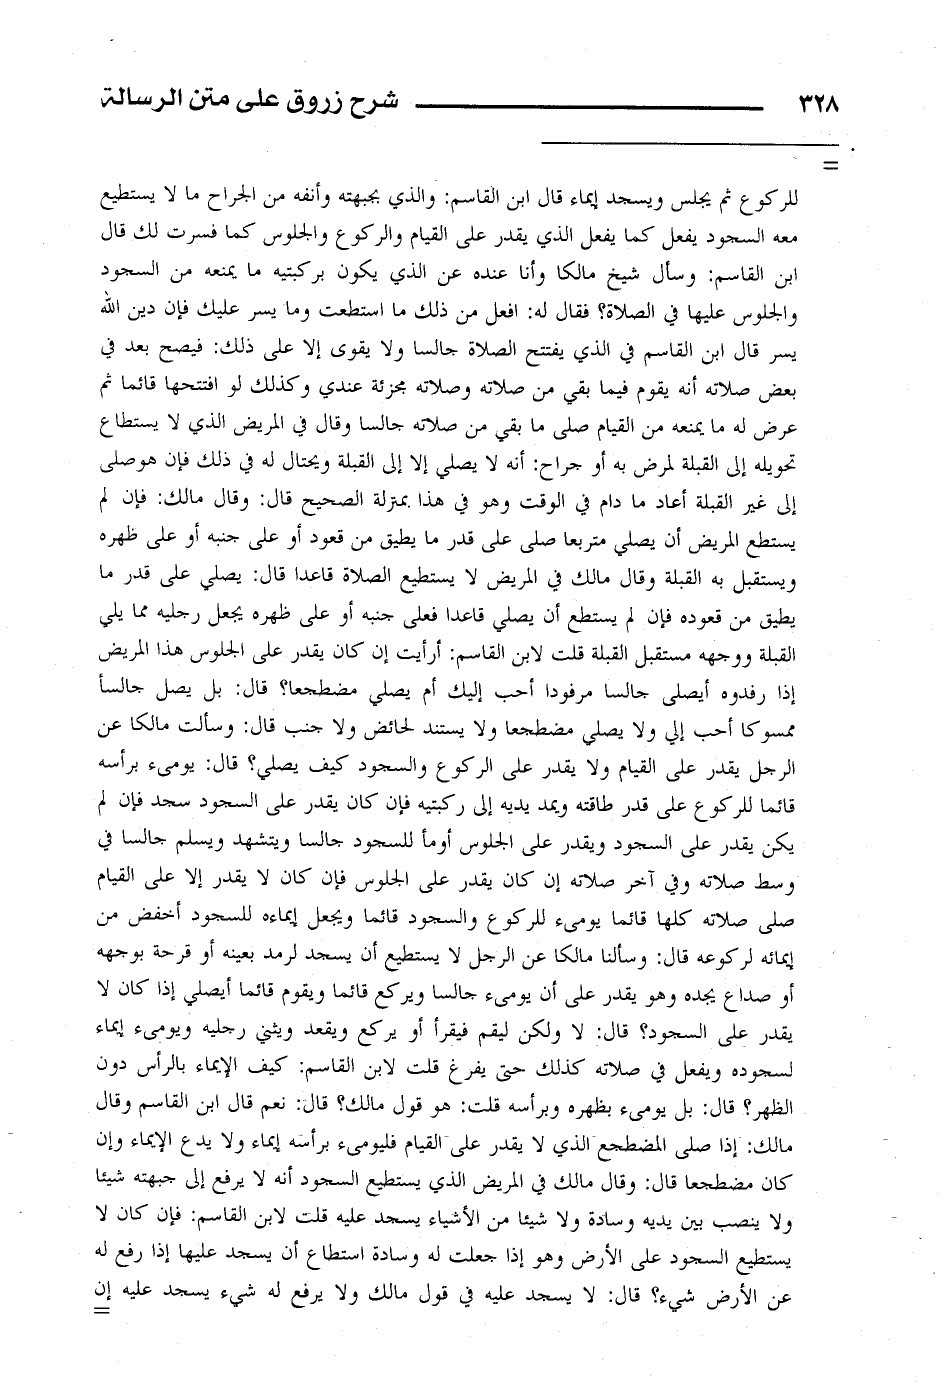 ٣٢٨ شرح زروق على متن الرسالة
=
للركوع ثم يجلس ويسجد إيماء قال ابن القاسم: والذي بجبهته وأنفه من الجراح ما لا يستطيع
معه السجود يفعل كما يفعل الذي يقدر على القيام والركوع والجلوس كما فسرت لك قال
ابن القاسم: وسأل شيخ مالكا وأنا عنده عن الذي يكون بركبتيه ما يمنعه من السجود
والجلوس عليها في الصلاة؟ فقال له: افعل من ذلك ما استطعت وما يسر عليك فإن دين الله
يسر قال ابن القاسم في الذي يفتتح الصلاة جالسا ولا يقوى إلا على ذلك: فيصح بعد في
بعض صلاته أنه يقوم فيما بقي من صلاته وصلاته مجزئة عندي وكذلك لو افتتحها قائما ثم
عرض له ما يمنعه من القيام صلى ما بقي من صلاته جالسا وقال في المريض الذي لا يستطاع
تحويله إلى القبلة لمرض به أو جراح: أنه لا يصلي إلا إلى القبلة ويحتال له في ذلك فإن هوصلى
إلى غير القبلة أعاد ما دام في الوقت وهو في هذا بمنزلة الصحيح قال: وقال مالك: فإن لم
يستطع المريض أن يصلي متربعا صلى على قدر ما يطيق من قعود أو على جنبه أو على ظهره
ويستقبل به القبلة وقال مالك في المريض لا يستطيع الصلاة قاعدا قال: يصلي على قدر ما
يطيق من قعوده فإن لم يستطع أن يصلي قاعدا فعلى جنبه أو على ظهره يجعل رجليه مما يلي
القبلة ووجهه مستقبل القبلة قلت لابن القاسم: أرأيت إن كان يقدر على الجلوس هذا المريض
إذا رفدوه أيصلى جالسا مرفودا أحب إليك أم يصلي مضطجعا؟ قال: بل يصل جالسأ
ممسوكا أحب إلي ولا يصلي مضطجعا ولا يستند لحائض ولا جنب قال: وسألت مالكا عن
الرجل يقدر على القيام ولا يقدر على الركوع والسجود كيف يصلي؟ قال: يومىء برأسه
قائما للركوع على قدر طاقته ويمد يديه إلى ركبتيه فإن كان يقدر على السجود سجد فإن لم
يكن يقدر على السجود ويقدر على الجلوس أومأ للسجود جالسا ويتشهد ويسلم جالسا في
وسط صلاته وفي آخر صلاته إن كان يقدر على الجلوس فإن كان لا يقدر إلا على القيام
صلى صلاته كلها قائما يومىء للركوع والسجود قائما ويجعل إيماءه للسجود أخفض من
إيمائه لركوعه قال: وسألنا مالكا عن الرجل لا يستطيع أن يسجد لرمد بعينه أو قرحة بوجهه
أو صداع يجده وهو يقدر على أن يومىء جالسا ويركع قائما ويقوم قائما أيصلي إذا كان لا
يقدر على السجود؟ قال: لا ولكن ليقم فيقرأ أو يركع ويقعد ويثني رجليه ويومىء إيماء
لسجوده ويفعل في صلاته كذلك حتى يفرغ قلت لابن القاسم: كيف الإيماء بالرأس دون
الظهر؟ قال: بل يومىء بظهره وبرأسه قلت: هو قول مالك؟ قال: نعم قال ابن القاسم وقال
مالك: إذا صلى المضطجع الذي لا يقدر على القيام فليومىء برأسه إيماء ولا يدع الإيماء وإن
كان مضطجعا قال: وقال مالك في المريض الذي يستطيع السجود أنه لا يرفع إلى جبهته شيئا
ولا ينصب بين يديه وسادة ولا شيئا من الأشياء يسجد عليه قلت لابن القاسم: فإن كان لا
يستطيع السجود على الأرض وهو إذا جعلت له وسادة استطاع أن يسجد عليها إذا رفع له
عن الأرض شيء؟ قال: لا يسجد عليه في قول مالك ولا يرفع له شيء يسجد عليه إن
=